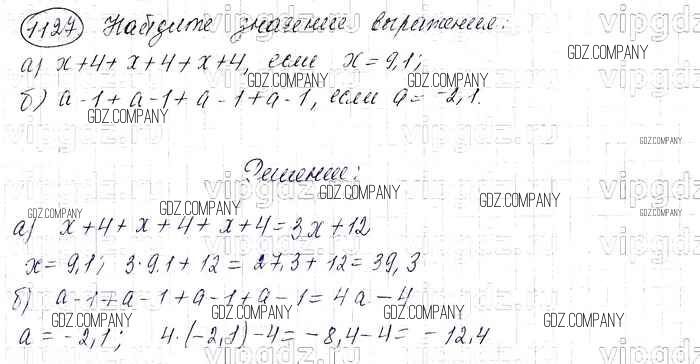 1127 Найдите значение выражения:
а) x+4+x+4+x+4, если x=9,1;
б) a-1+a-1+a-1+a-1, если a=-2,1.
Решение:
а) x+4+x+4+x+4=3x+12
x=9,1; 3·9.1+12=27,3+12=39,3
б) a-1+a-1+a-1+a-1=4a-4
a=-2,1; 4·(-2,1)-4=-8,4-4=-12,4